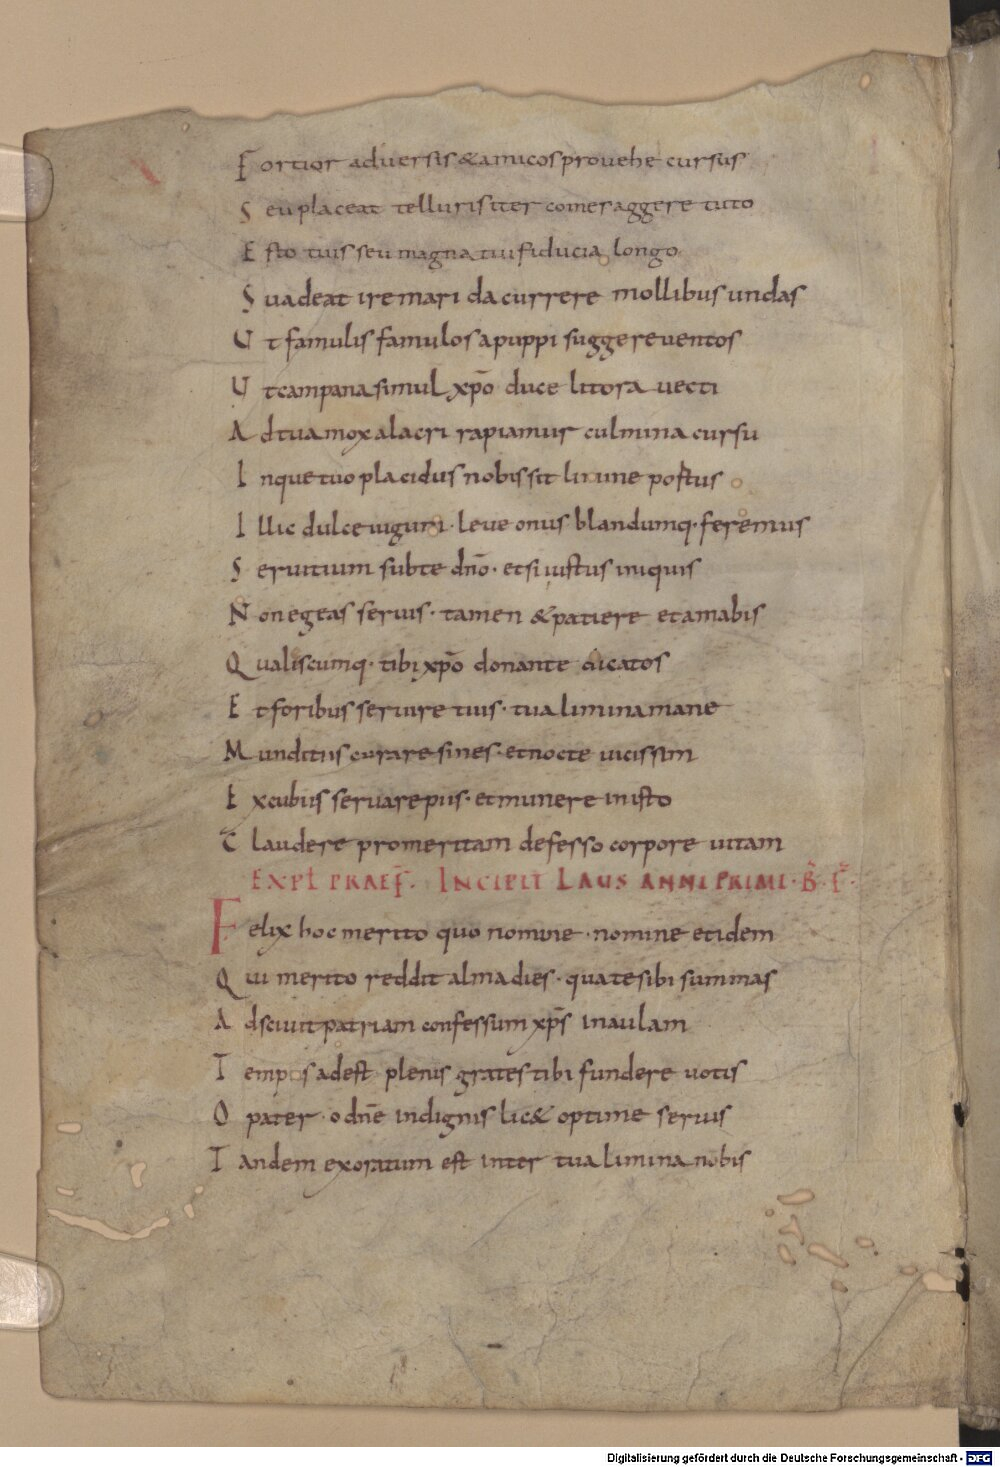 Fortior aduersis & amicos prouehe cursus
Seu placeat telluris iter comeraggere tuto
Esto tuis seu magna tui fiducia longo
Suadeat ire mari da currere mollibus undas
Ut famulis famulos a puppi suggere uentos
Ut campana simul xp̄o duce litora uecti
Ad tua mox alacri rapiamur culmina cursu
Inque tuo placidus nobis sit limine postus
Illic dulce iugum · leue onus blandumq· feremus
Seruitium sub te dn̄o · et si iustus iniquis
Non egeas seruis · tamen & patiere et amabis
Qualiscumq· tibi xp̄o donante dicatos
Et foribus seruire tuis · tua limina mane
Munditiis curare sines · et nocte uicissim
Excubiis seruare piis · et munere in isto
Claudere promeritam defesso corpore uitam
EXPL PRAEF. INCIPIT LAUS ANNI PRIMI · B̄ · F̄ ·
Felix hoc merito quo nomine · nomine et idem
Qui merito reddit alma dies · qua te sibi summas
Adsciuit patriam confessum xp̄s in aulam
Tempus adest plenis grates tibi fundere uotis
O pater · o dn̄e indignis lic& optime seruis
Tandem exoratum est inter tua limina nobis
Digitalisierung gefördert durch die Deutsche Forschungsgemeinschaft - DFG